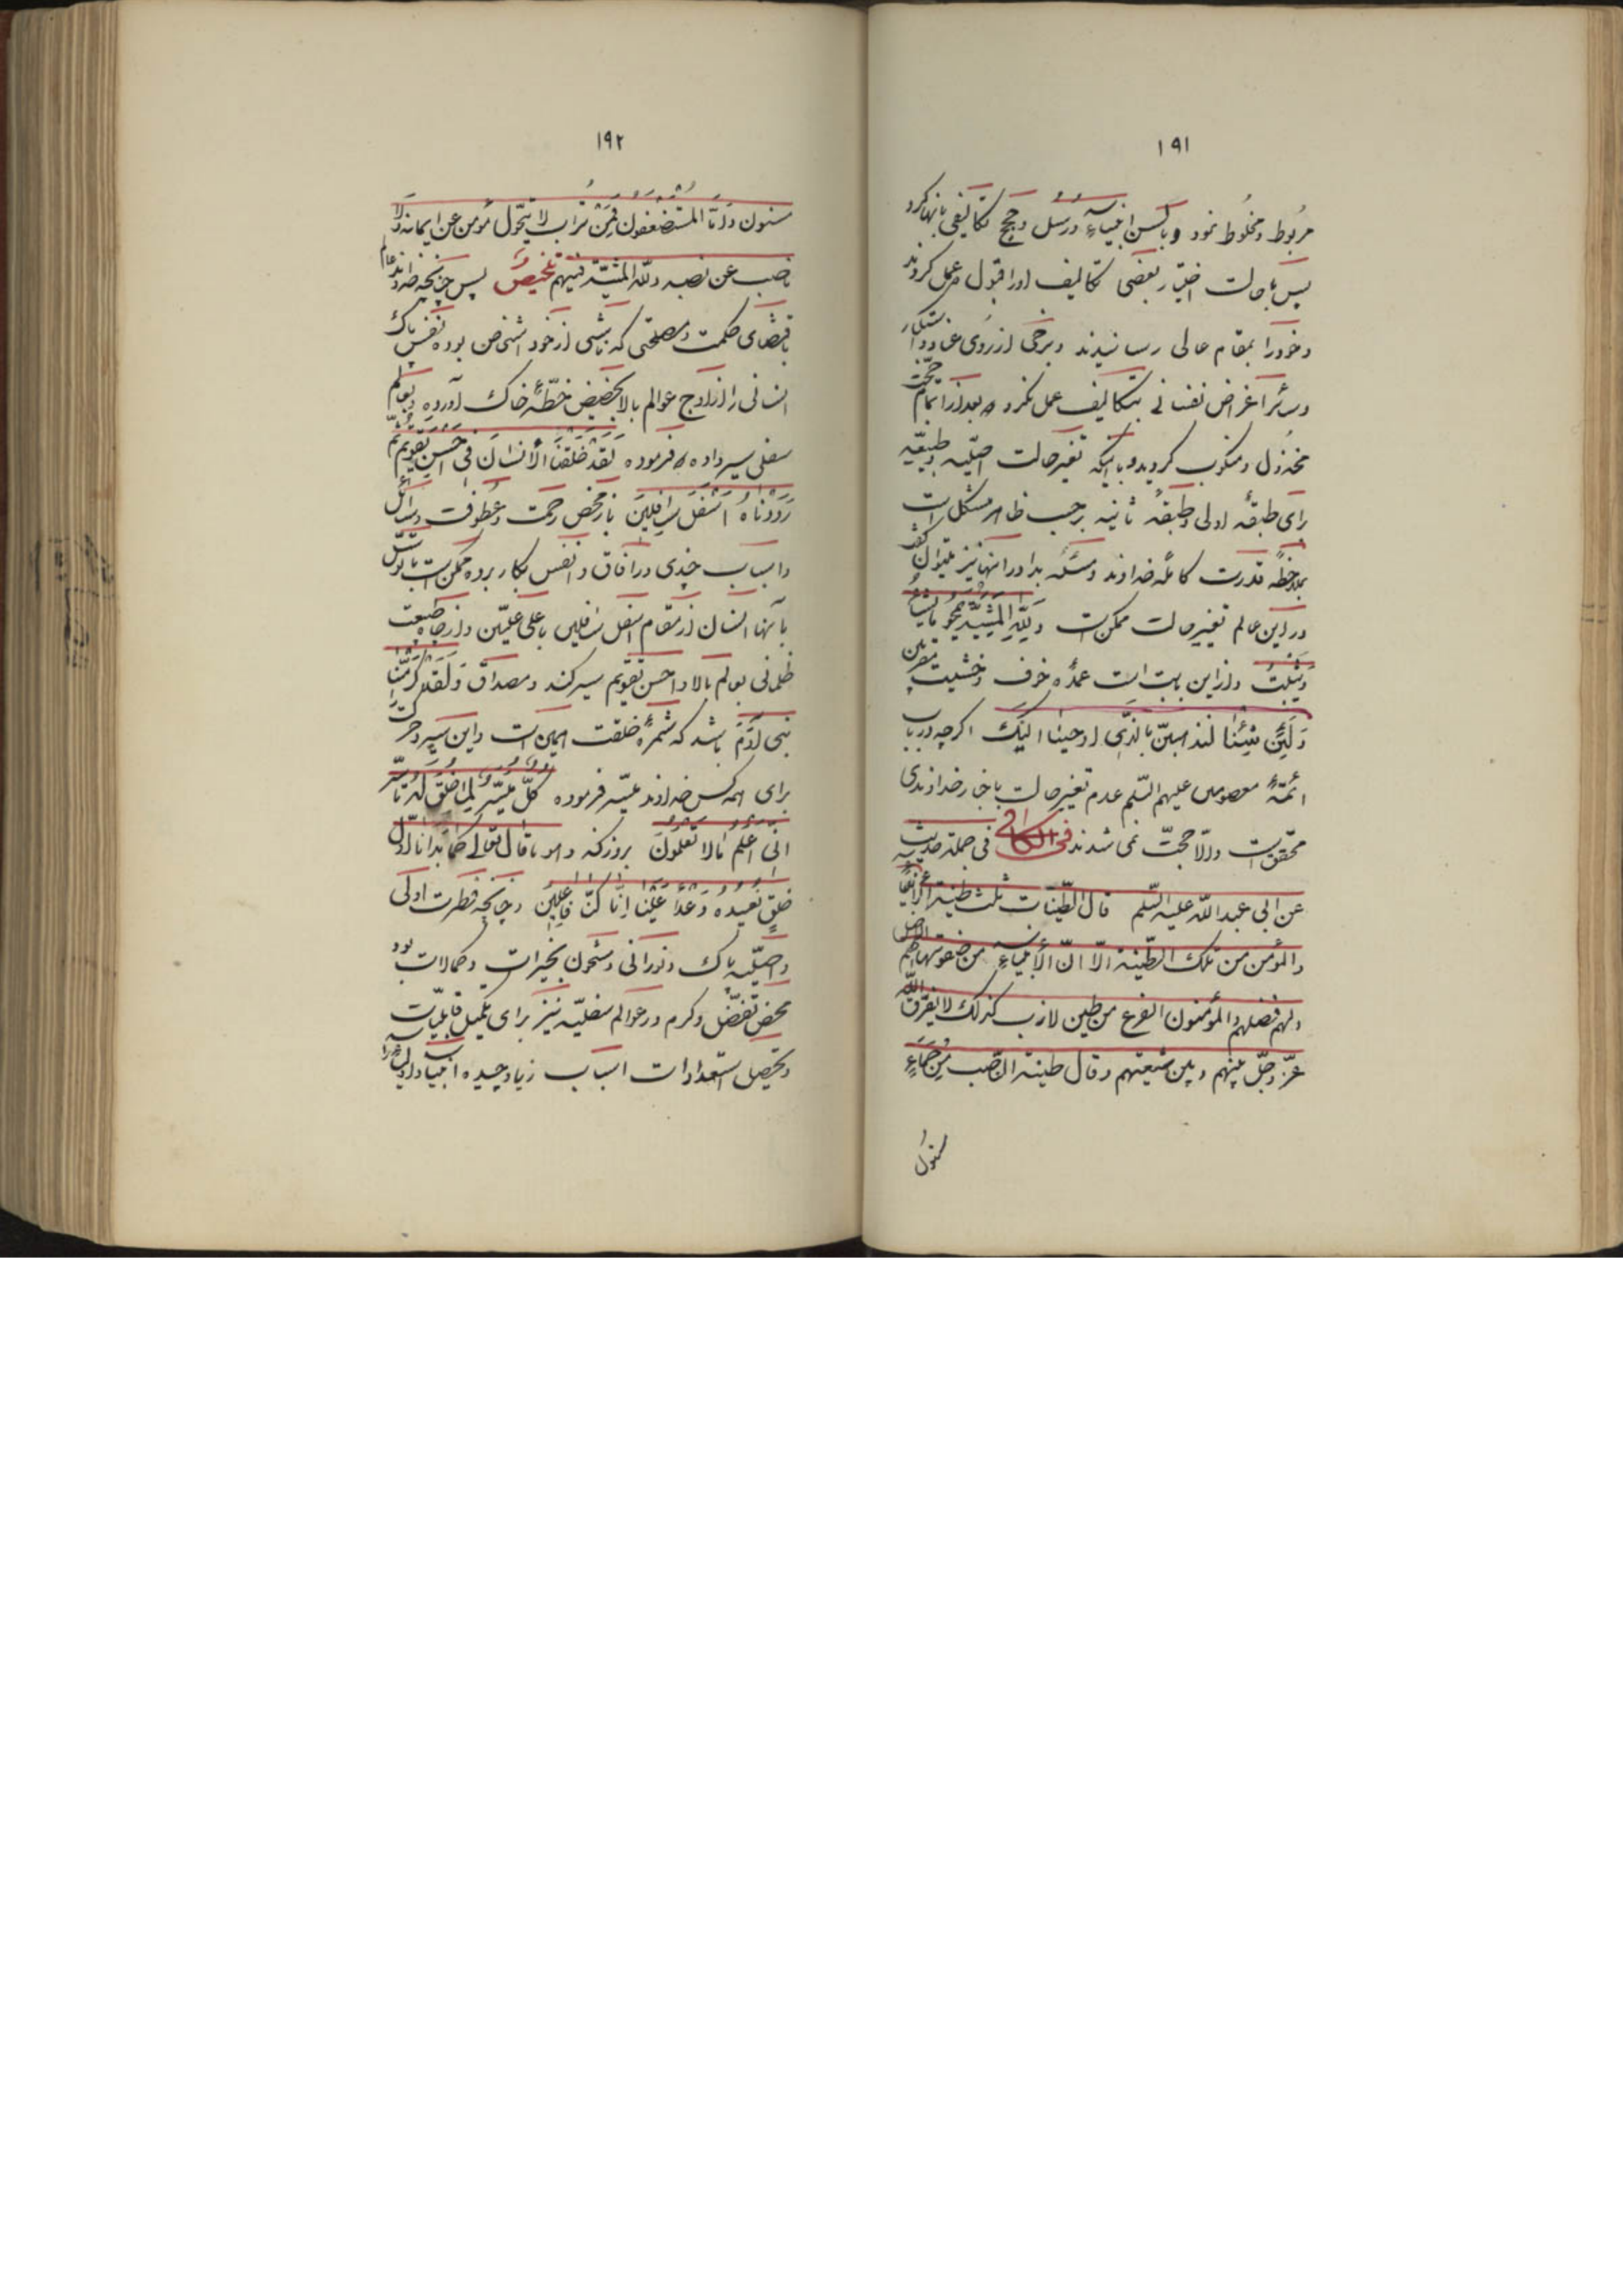 ۱۹۱
مربوط و مخلوط نمود و بالسن انبیاء و رسل و حجج تکالیفی بانها کرد
پس با حالت اختیار بعضی تکالیف او را قبول و عمل کردند
و خود را بمقام عالی رسانیدند و برخی از روی عناد و استکبار
و سائر اغراض نفسانی بتکالیف عمل نکرده بعد از اتمام حجّت
مخذول و منکوب کردیدند با اینکه تغیر حالت اصلیه و طبیعیه
برای طبقهٔ اولی و طبقهٔ ثانیه بر حسب ظاهر مشکل است
بملاحظهٔ قدرت کاملهٔ خداوند و مسئله بدا در انها نیز میتوان گفت
در این عالم تغییر حالت ممکن است و لِلّهِ المَشیّة یمحو ما یشاء
و یثبت و از این بابت است عمدهٔ خوف و خشیت مقربین
وَلَئِن شِئنا لنذهبنّ بالذی اوحینا الیک اکرچه در باب
ائمّهٔ معصومین علیهم السّلم عدم تغیر حالت باخبار خداوندی
محقق است والّا حجّت نمی شدند فی الکافی فی جملة حدیث
عن ابی عبد اللّه علیه السّلم قال الطّینات ثلث طینة الأنبیاء
والمؤمن من تلک الطّینة الّا انّ الأنبیاء من صفوتها هم الاصل
ولهم فضلهم والمؤمنون الفرع من طین لازب کذلک لا یفرّق اللّه
عزّ وجلّ بینهم وبین شیعتهم وقال طینة النّاصب مِن حَمَاءٍ
مسنون
۱۹۲
مسنون وامّا المستضعفون فمن تراب لا یتحوّل مؤمن عن ایمانه ولا
ناصب عن نصبه وللّه المشیّة فیهم تلخیصٌ پس چنانچه خداوند عالم
باقتضای حکمت و مصلحتی که ناشی از خود اشخاص بوده نفس پاک
انسانی را از اوج عوالم بالا بحضیض خطّهٔ خاک آورده و بعالم
سفلی سیر داده و فرموده لَقَد خَلَقنَا الأنسانَ فی احسن تقویم ثمّ
رَدَدناهُ اَسفَلَ سافِلینَ باز محض رحمت و عطوفت وسائل
و اسباب چندی در افاق و انفس بکار برده ممکن است با توسّل
بآنها انسان از مقام اسفل سافلین باعلی علیّین و از چاه طبیعت
ظلمانی بعالم بالا و احسن تقویم سیر کند و مصداق وَلَقَد کَرَّمنا
بنی آدَمَ باشد که ثمرهٔ خلقت همین است و این سیر و حرکت را
برای همه کس خداوند میسّر فرموده کلّ میسّر لما خلق له تا سرّ
انّی اَعلَمُ ما لا تَعلَمُونَ بروز کند و هو ما قال تعالی کَما بَدَأنا اَوّلَ
خلقٍ نُعیدهُ وَعداً عَلَینا اِنّا کُنّا فاعِلینَ و چنانچه فطرت اولی
و اصلیّه پاک و نورانی و مشحون بخیرات و کمالات بود
محض تفضّل و کرم در عوالم سفلیّه نیز برای تکمیل قابلیّات
و تحصیل استعدادات اسباب زیاد چیده انبیاء و اولیاء را